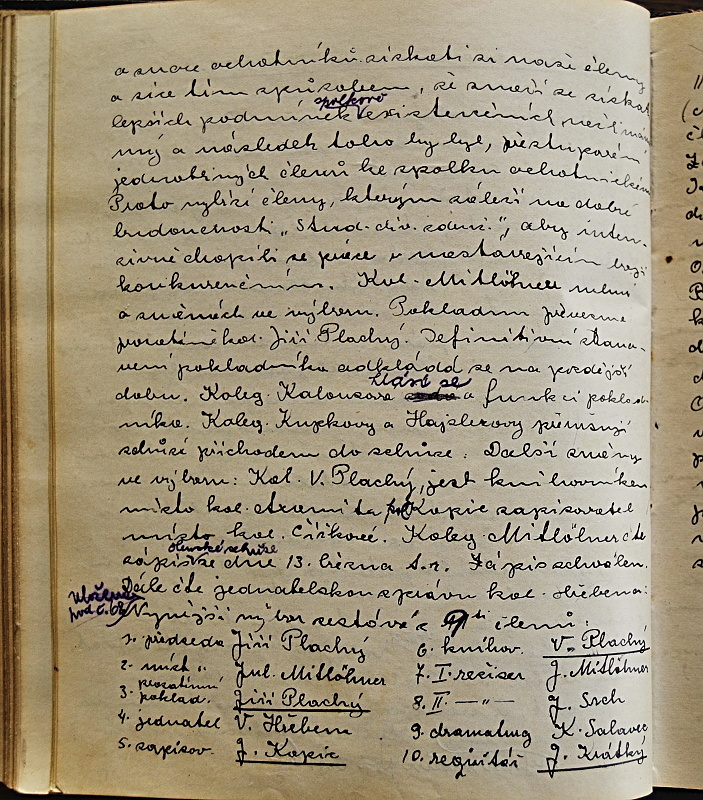 a snaze ochotníků získati si naše členy
a sice tím způsobem, že snaží se získat
lepších podmínek spolkově existenčních, než li
ný a následek toho by byl, přestupování
jednotlivých členů ke spolku ochotnickému
Proto vybízí členy, kterým záleží na dobré
budoucnosti „Stud. div. sdruž.", aby inten-
sivně chopili se práce v nastávajícím boji
konkurenčním. Kol. Mitlöhner mluví
o změnách ve výboru. Pokladnu převezme
prozatímně kol. Jiří Plachý. Definitivní stano-
vení pokladníka odkládá se na pozdější
dobu. Koleg. Kalousova vzdává se funkcí poklad-
níka. Koleg. Kupkovy a Hajzlerovy přerušují
schůzi příchodem do schůze. Další změny
ve výboru: Kol. V. Plachý, jest knihovníkem
místo kol. a Kopic zapisovatel
místo kol. Čížkové. Koleg. Mitlöhner čte
zápis členské schůze ze dne 13. března t.r. Zápis schválen.
Dále čte jednatelskou zprávu kol. Hřebena:
Vloženo pod č. 68
Nynější výbor sestává z 9ti členů:
1. předseda Jiří Plachý
2. míst. „ Jul. Mitlöhner
3. prozatímní poklad. Jiří Plachý
4. jednatel V. Hřeben
5. zapisov. J. Kopic
6. knihov. V. Plachý
7. I. režiser J. Mitlöhner
8. II. —„— J. Srch
9. dramaturg K. Salavec
10. reqisitář J. Krátký